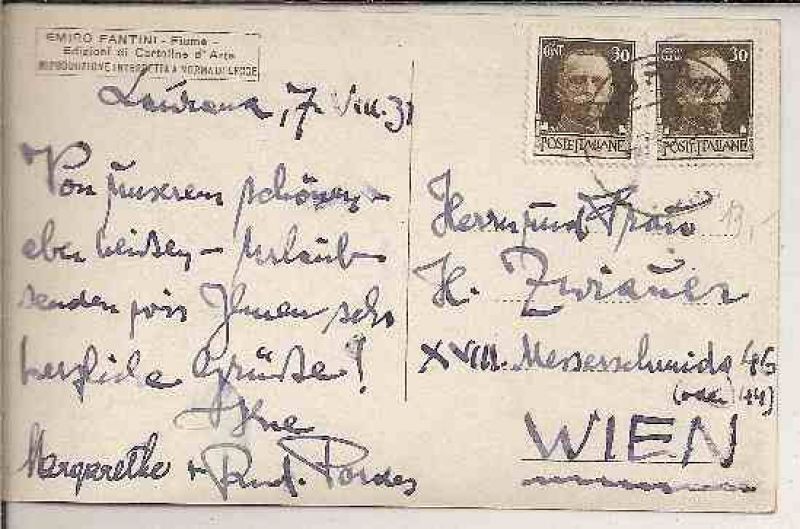 EMIRO FANTINI - Fiume -
Edizioni di Cartoline d'Arte
RIPRODUZIONE INTERDETTA A NORMA DI LEGGE
Laurana, 7. VIII. 31
Von unserem schönen –
aber heißen – Urlaub
senden wir Ihnen sehr
herzliche Grüße!
Ihre
Margarethe + Rud. Pordes
CENT 30
POSTE ITALIANE
30
POSTE ITALIANE
13,-
Herrn und Frau
H. Zwiauer
XVIII. Messerschmidg 46
(oder 44)
WIEN